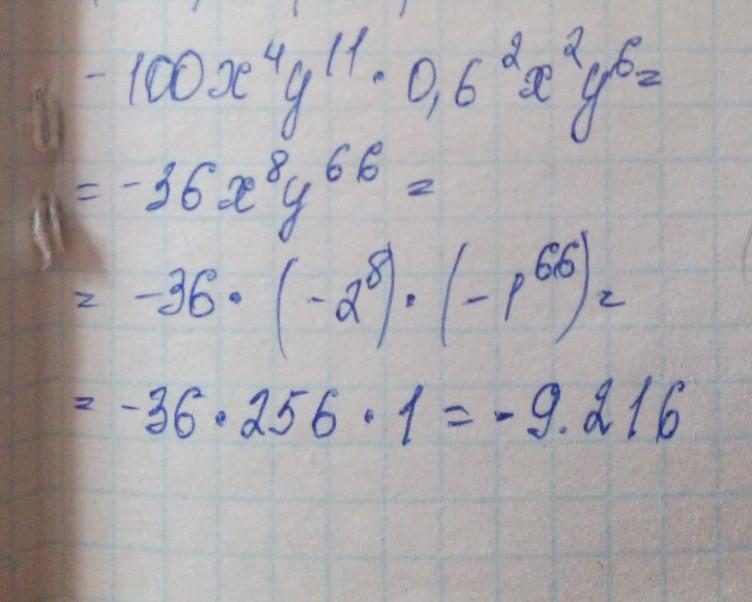 - 100x⁴y¹¹ · 0,6²x²y⁶ =
= -36x⁸y⁶⁶ =
= -36 · (-2⁸) · (-1⁶⁶) =
= -36 · 256 · 1 = -9.216